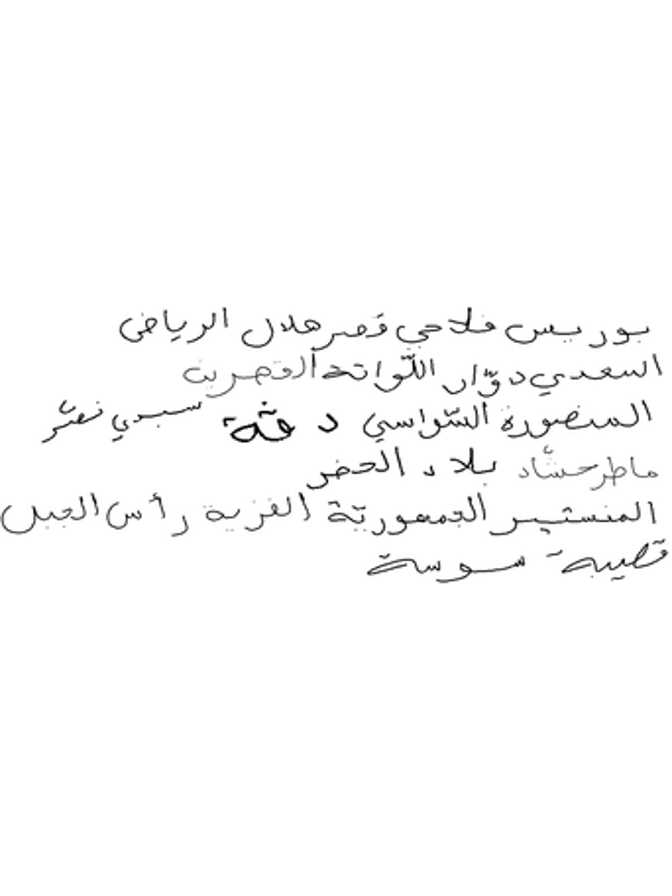 بوريس فلاحي قصر هلال الرياض
السعدي دوّار اللّواتة القصرين
المنصورة السّواسي دقّة سيدي نصر
ماطر حشّاد بلاد الحضر
المنستير الجمهوريّة الغربة رأس الجبل
قصيبة سوسة